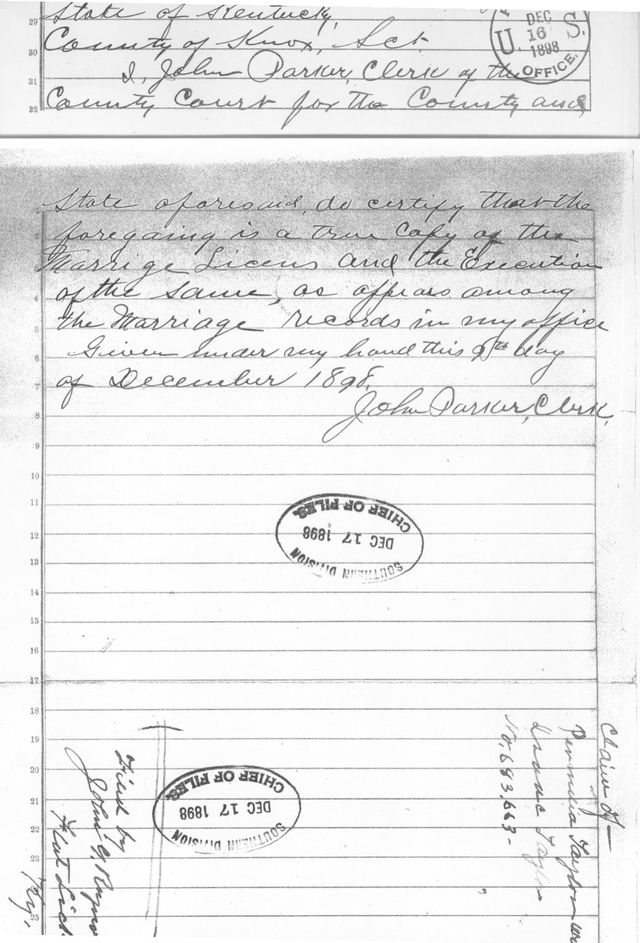 State of Kentucky,
County of Knox, Sct.
I, John Parker, Clerk of the
County Court for the County and
DEC
16
1898
U. S.
OFFICE.
State aforesaid, do certify that the
foregoing is a true Copy of the
Marrige Licens and the Execution
of the same, as appears among
the Marriage records in my office
Given under my hand this 9th day
of December 1898.
John Parker, Clerk.
SOUTHERN DIVISION
DEC 17 1898
CHIEF OF FILES.
SOUTHERN DIVISION
DEC 17 1898
CHIEF OF FILES.
Claim of
Taylor
Isaac Taylor
No. 683,663
Filed by
John G.
Flat Lick
Ky.
29
30
31
32
1
2
3
4
5
6
7
8
9
10
11
12
13
14
15
16
17
18
19
20
21
22
23
24
25